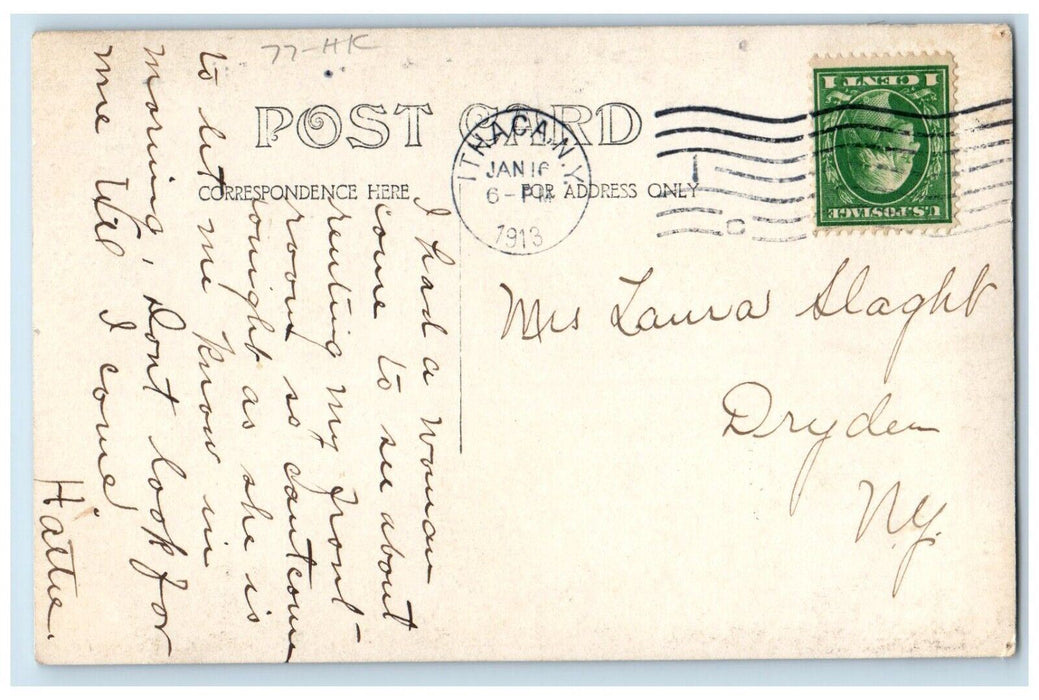 77-HK
POST CARD
CORRESPONDENCE HERE
FOR ADDRESS ONLY
ITHACA, N.Y.
JAN 16
6-PM
1913
1 CENT 1
U.S. POSTAGE
I had a woman
come to see about
renting my front
room so cant come
tonight as she is
to let me know in
morning, Dont look for
me till I come
Hattie.
Mrs Laura Slaght
Dryden
N.Y.